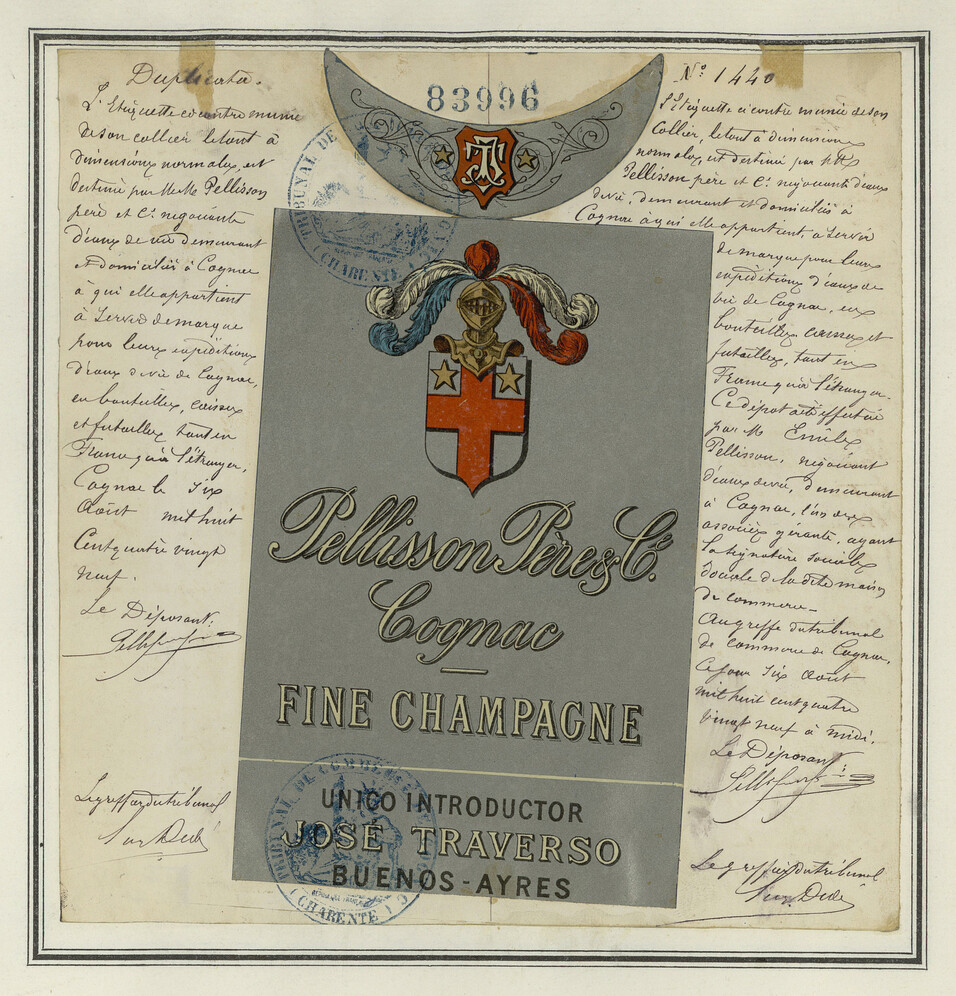 Duplicata.
L'Etiquette ci contre munie
de son collier le tout à
dimensions normales, est
destinée par M.M. Pellisson
père et Cie négociants
d'eaux de vie demeurant
et domiciliés à Cognac
à qui elle appartient
à servir de marque
pour leurs expéditions
d'eaux de vie de Cognac,
en bouteilles, caisses
et futailles tant en
France qu'à l'étranger.
Cognac le six
Août mil huit
cent quatre vingt
neuf.
Le Déposant:
Le greffier du tribunal
83996
Pellisson Père & Cie.
Cognac
FINE CHAMPAGNE
UNICO INTRODUCTOR
JOSÉ TRAVERSO
BUENOS-AYRES
TRIBUNAL DE
CHARENTE
TRIBUNAL DE COMMERCE
CHARENTE
No 1440
L'Etiquette ci contre munie de son
Collier, le tout à dimensions
normales, est destinée par MM
Pellisson père et Cie négociants d'eaux
de vie, demeurant et domiciliés à
Cognac à qui elle appartient, à servir
de marque pour leurs
expéditions d'eaux de
vie de Cognac, en
bouteilles, caisses et
futailles, tant en
France qu'à l'étranger.
Ce dépôt a été effectué
par M. Emile
Pellisson, négociant
d'eaux de vie, demeurant
à Cognac, l'un des
associés gérants, ayant
la signature sociale
de la dite maison
de commerce.
Au greffe du tribunal
de commerce de Cognac,
ce jour six Août
mil huit cent quatre
vingt neuf à midi.
Le Déposant:
Le greffier du tribunal